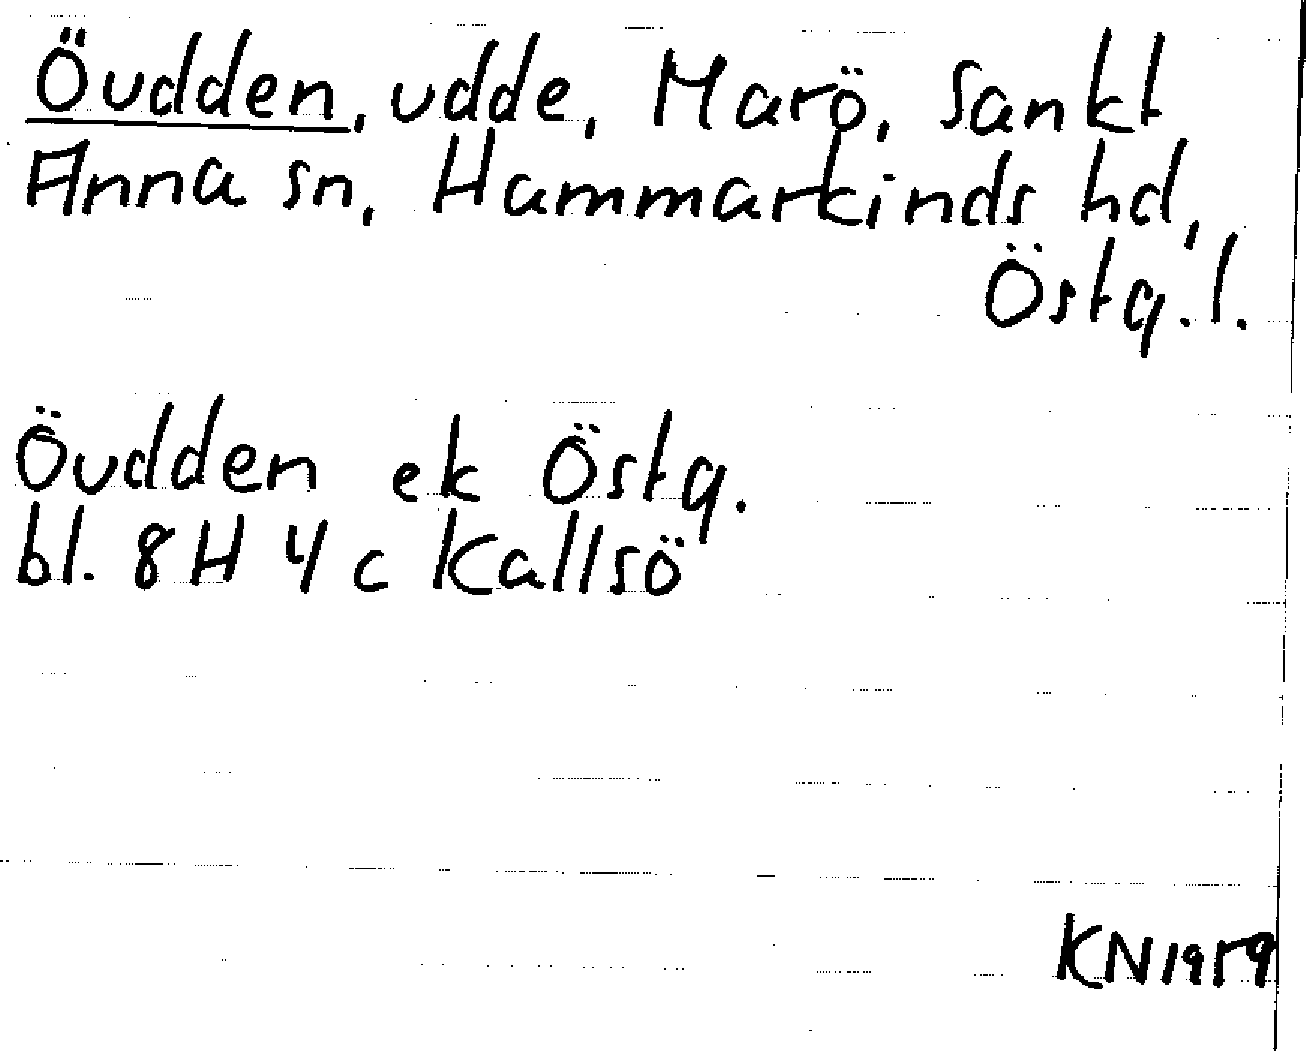 Öudden, udde, Marö, Sankt
Anna sn, Hammarkinds hd,
Östg. l.
Öudden ek Östg.
bl. 8H 4c Kallsö
KN 1959